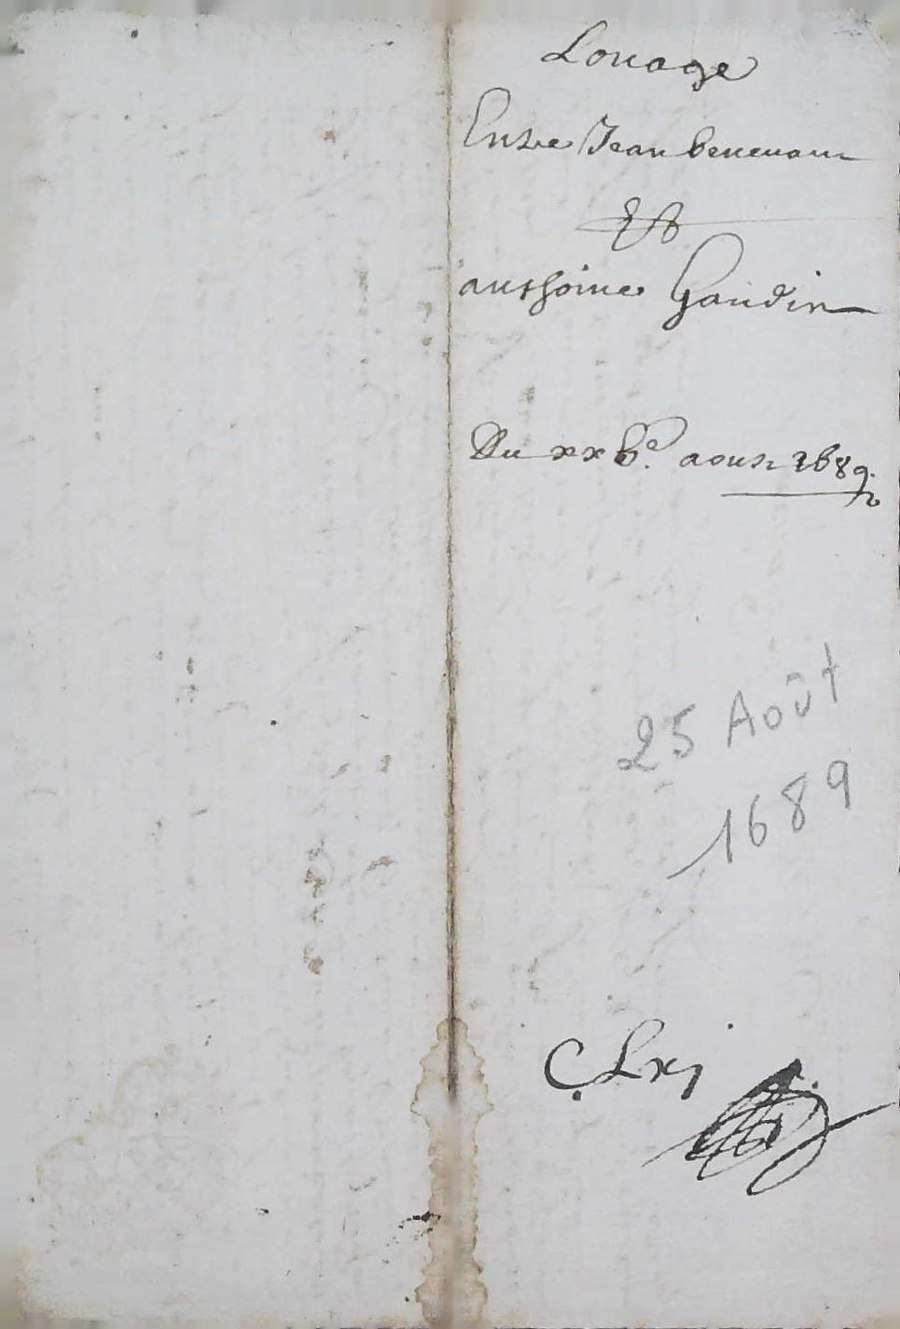 Louage
Entre Jean benenaun
Et
anthoine Gaudin
Du xxbe. aoust 1689.
25 Août
1689
C. Lxj